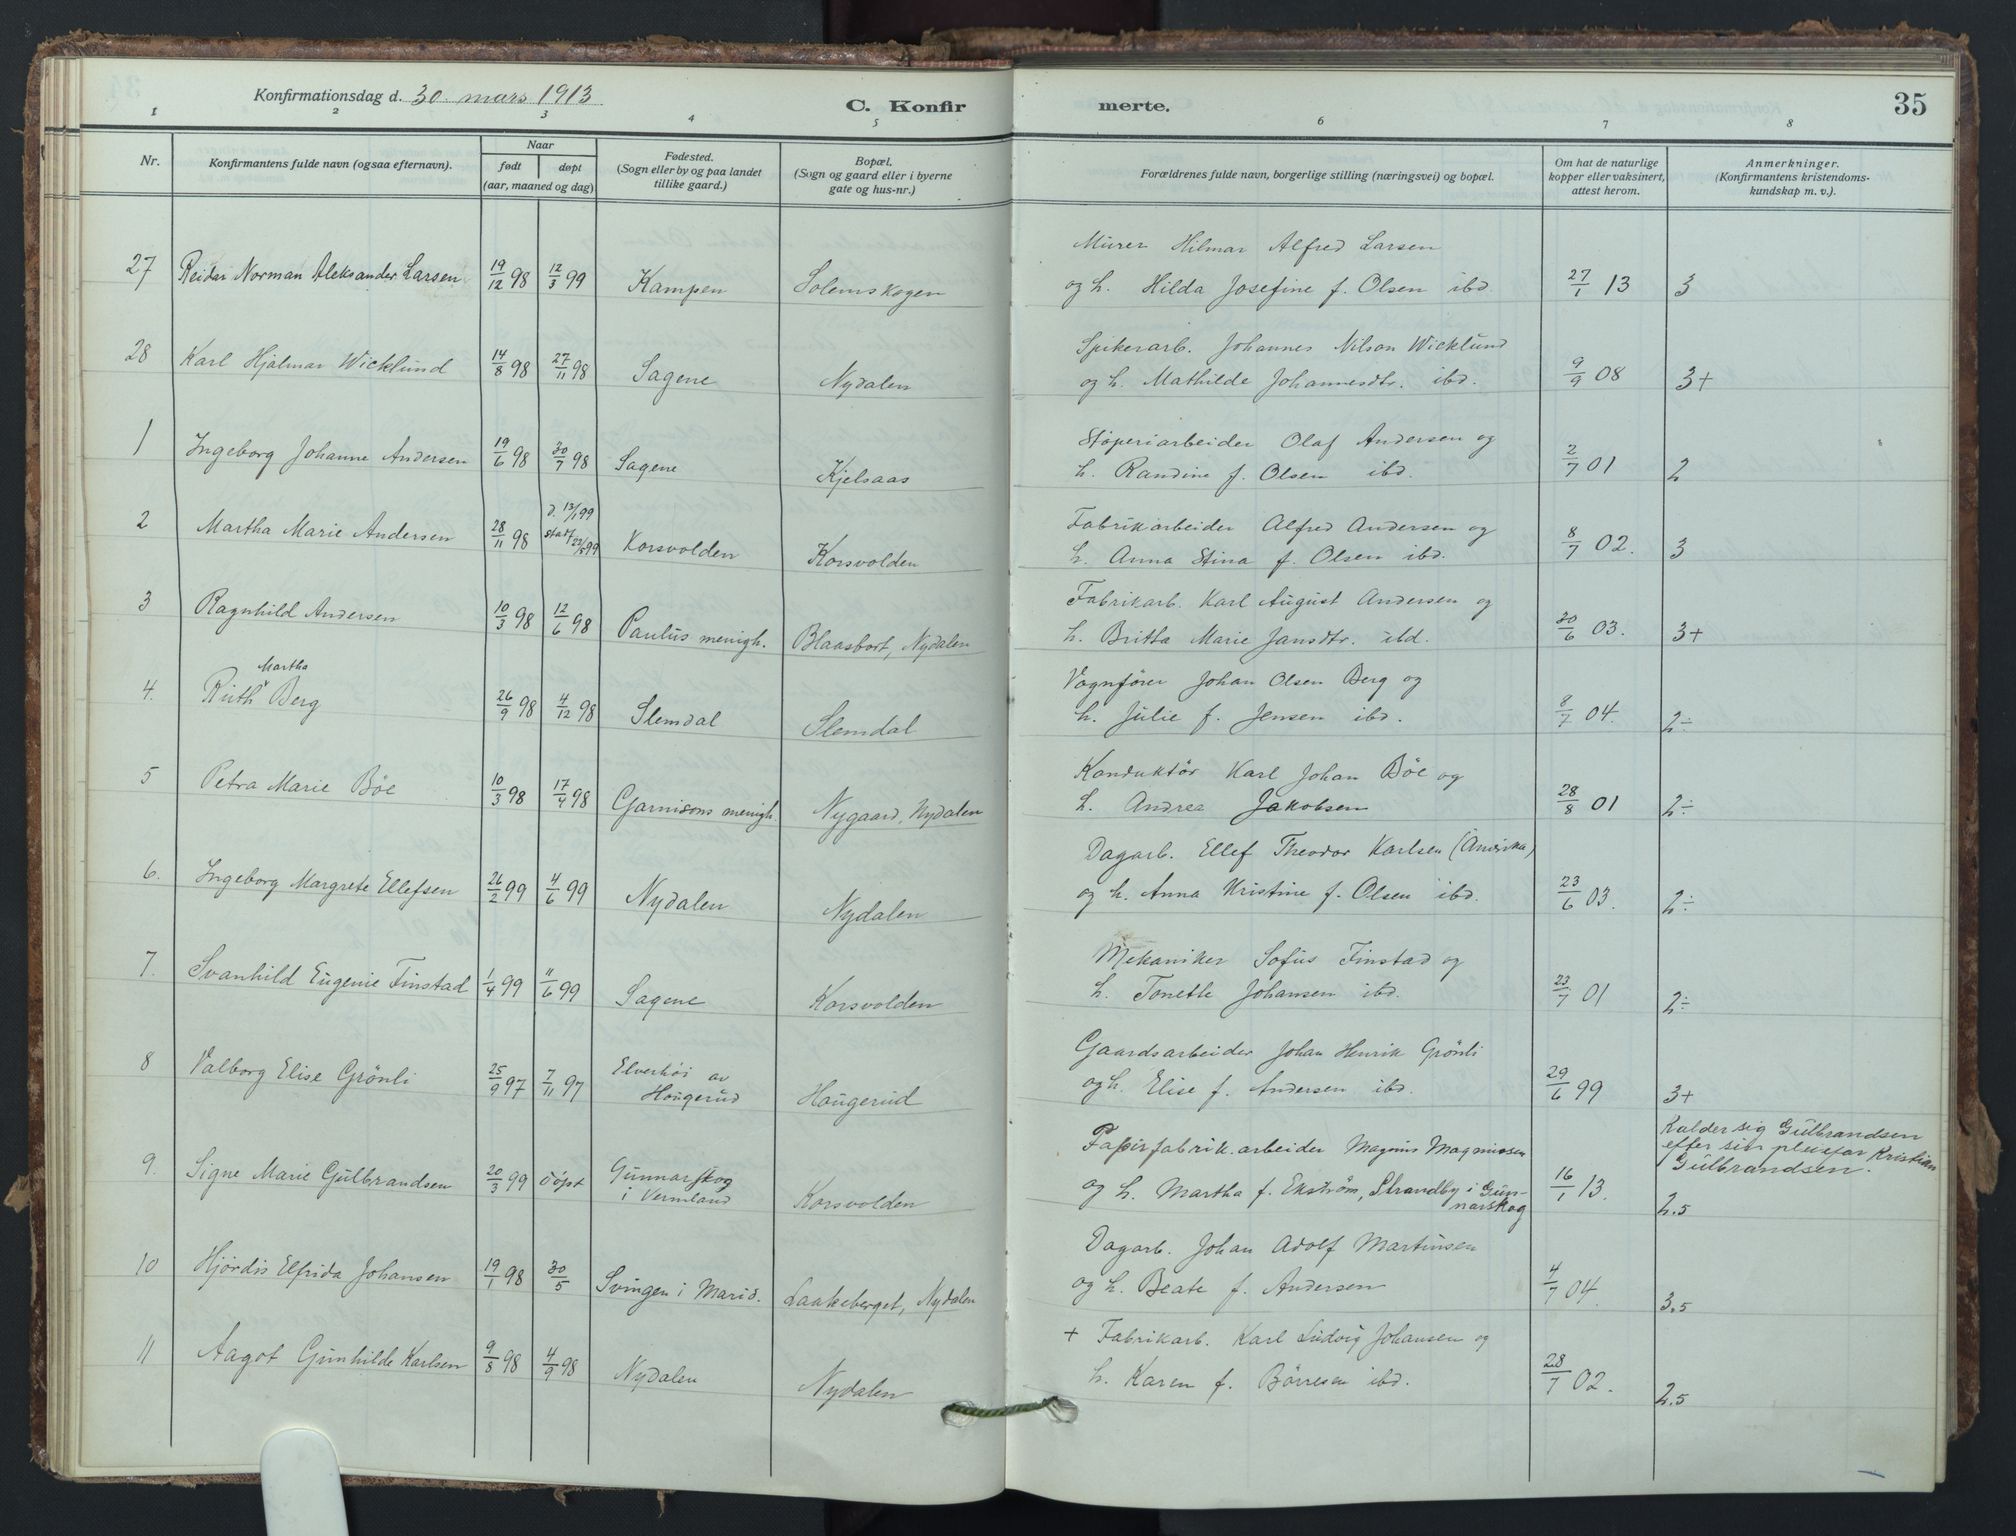 Konfirmationsdag d. 30 mars 1913
C. Konfirmerte.
35
1 2 3 4 5 6 7 8
Nr.
Konfirmantens fulde navn (ogsaa efternavn).
Naar
født døpt
(aar, maaned og dag)
Fødested.
(Sogn eller by og paa landet
tillike gaard.)
Bopæl.
(Sogn og gaard eller i byerne
gate og hus-nr.)
Forældrenes fulde navn, borgerlige stilling (næringsvei) og bopæl.
Om hat de naturlige
kopper eller vaksinert,
attest herom.
Anmerkninger.
(Konfirmantens kristendoms-
kundskap m. v.).
Murer Hilmar Alfred Larsen
27 Reidar Norman Aleksander Larsen 19/12 98 12/3 99 Kampen Solemskogen og h. Hilda Josefine f. Olsen ibd. 27/1 13 3
Spikerarb. Johannes Nilson Wicklund
28 Karl Hjalmar Wicklund 14/8 98 27/11 98 Sagene Nydalen og h. Mathilde Johannesdtr. ibd. 9/9 08 3+
Støperiarbeider Olaf Andersen og
1 Ingeborg Johanne Andersen 19/6 98 30/7 98 Sagene Kjelsaas h. Randine f. Olsen ibd. 2/7 01 2
d. 13/1 99
Fabrikarbeider Alfred Andersen og
2 Martha Marie Andersen 28/11 98 stadf. 22/5 99 Korsvolden Korsvolden h. Anna Stina f. Olsen ibd. 8/7 02. 3
Fabrikarb. Karl August Andersen og
3 Ragnhild Andersen 10/3 98 12/6 98 Paulus menigh. Blaasbort, Nydalen h. Britta Marie Jansdtr. ibd. 30/6 03. 3+
Martha
Vognfører Johan Olsen Berg og
4. Ruth Berg 26/9 98 4/12 98 Slemdal Slemdal h. Julie f. Jensen ibd. 8/7 04. 2÷
Konduktör Karl Johan Böe og
5 Petra Marie Böe 10/3 98 17/4 98 Garnisons menigh. Nygaard, Nydalen h. Andrea Jakobsen 28/8 01 2÷
Dagarb. Ellef Theodor Karlsen (Amerika)
6. Ingeborg Margrete Ellefsen 26/2 99 4/6 99 Nydalen Nydalen og h. Anna Kristine f. Olsen ibd. 23/6 03. 2÷
Mekaniker Sofus Finstad og
7. Svanhild Eugenie Finstad 1/4 99 11/6 99 Sagene Korsvolden h. Tonette Johansen ibd. 23/7 01 2÷
Gaardsarbeider Johan Henrik Grönli
8 Valborg Elise Grönli 25/9 97 7/11 97 Elverhöi av Hougerud Hougerud og h. Elise f. Andersen ibd. 29/6 99 3+
Kalder sig Gulbrandsen
efter sin pleiefar Kristian
Gulbrandsen.
Papirfabrik.arbeider Magnus Magnussen
9. Signe Marie Gulbrandsen 20/3 99 döpt Gunnarskog i Vermland Korsvolden og h. Martha f. Ekström, Strandby i Gun-
narskog 16/1 13. 2.5
Dagarb. Johan Adolf Martinsen
10 Hjördis Elfrida Johansen 19/1 98 30/5 Svingen i Marid. Laakeberget, Nydalen og h. Beate f. Andersen 4/7 04. 3.5
+ Fabrikarb. Karl Ludvig Johansen og
11 Aagot Gunhilde Karlsen 9/8 98 4/9 98 Nydalen Nydalen h. Karen f. Börresen ibd. 28/7 02. 2.5